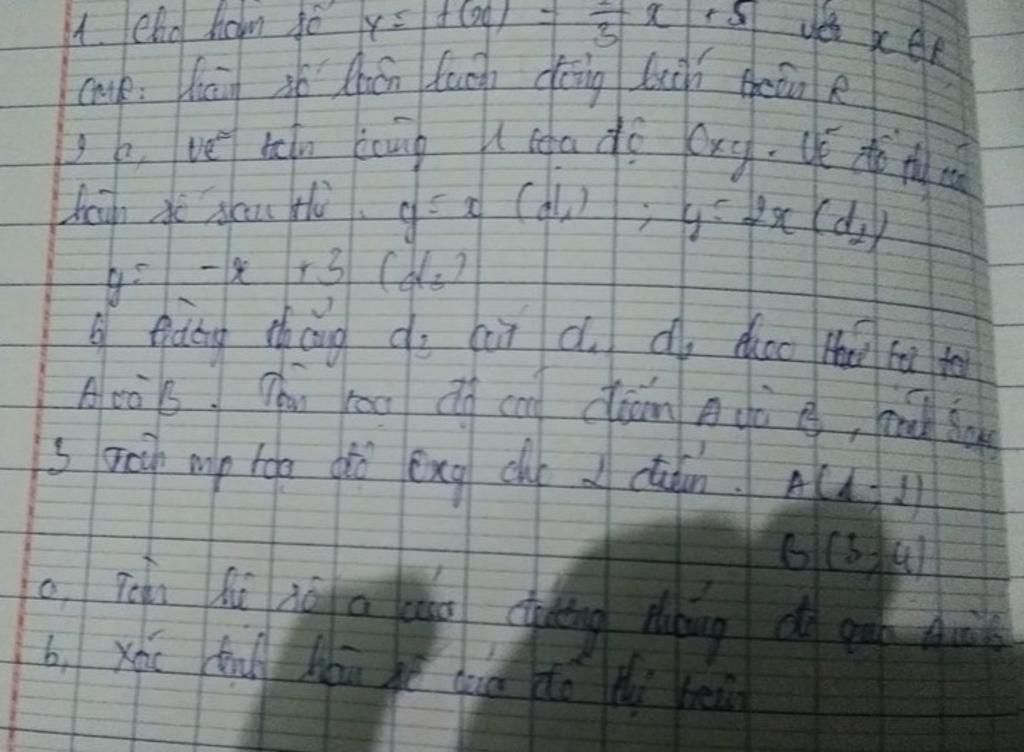 1. Cho hàm số y = f(x) = x + 5 với x ∈ R
CMR: hàm số luôn luôn đồng biến trên R
a, vẽ trên cùng 1 tọa độ Oxy. Vẽ đồ thị các
hàm số sau thì. y = x (d1) ; y = 2x (d2)
y = -x + 3 (d3)
b Đường thẳng d3 cắt d1 d2 theo thứ tự tại
A và B. Tìm tọa độ các điểm A và B, Tính
3 Trên mp tọa độ Oxy cho 2 điểm. A(1;
B(3;4)
a, Tìm hệ số a của đường thẳng đi qua A và B
b, Xác định hàm số của đồ thị trên